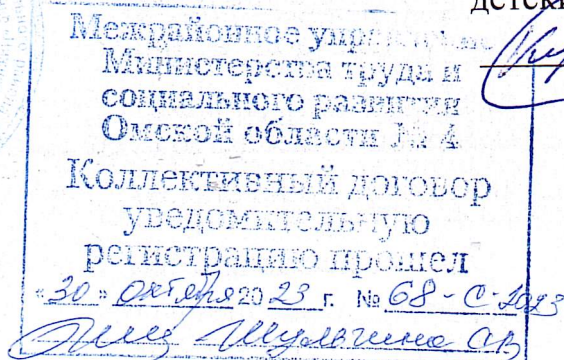 детски
Межрайонное управление
Министерства труда и
социального развития
Омской области № 4
Коллективный договор
уведомительную
регистрацию прошел
«30» октября 20 23 г. № 68 - С - 2023